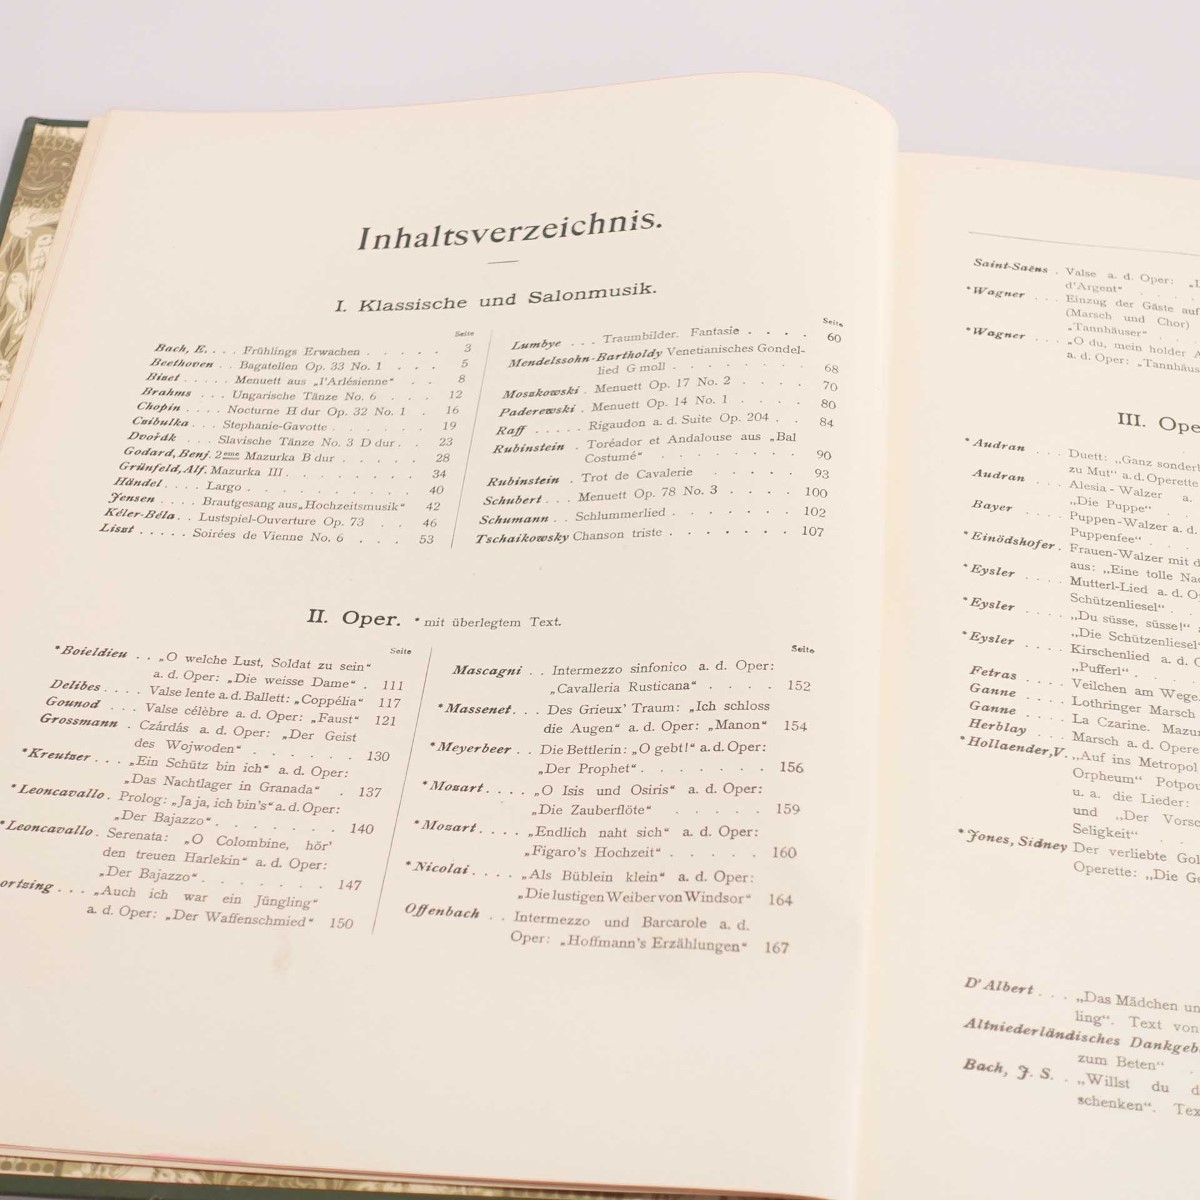 Inhaltsverzeichnis.
I. Klassische und Salonmusik.
Seite
Bach, E. . . . Frühlings Erwachen . . . . . 3
Beethoven . . Bagatellen Op. 33 No. 1 . . . 5
Bizet . . . . . Menuett aus „l'Arlésienne“ . . 8
Brahms . . . Ungarische Tänze No. 6 . . . 12
Chopin . . . . Nocturne H dur Op. 32 No. 1 . 16
Czibulka . . . Stephanie-Gavotte . . . . . 19
Dvořák . . . Slavische Tänze No. 3 D dur . . 23
Godard, Benj. 2eme Mazurka B dur . . . . . 28
Grünfeld, Alf. Mazurka III . . . . . . . . 34
Händel . . . . Largo . . . . . . . . . . 40
Jensen . . . . Brautgesang aus „Hochzeitsmusik“ 42
Kéler-Béla . . Lustspiel-Ouverture Op. 73 . . 46
Liszt . . . . . Soirées de Vienne No. 6 . . . 53
Seite
Lumbye . . . Traumbilder. Fantasie . . . . 60
Mendelssohn-Bartholdy Venetianisches Gondel-
lied G moll . . . . . . . . 68
Moszkowski . Menuett Op. 17 No. 2 . . . . 70
Paderewski . Menuett Op. 14 No. 1 . . . . 80
Raff . . . . . Rigaudon a. d. Suite Op. 204 . . 84
Rubinstein . Toréador et Andalouse aus „Bal
Costumé“ . . . . . . . . . 90
Rubinstein . Trot de Cavalerie . . . . . . 93
Schubert . . . Menuett Op. 78 No. 3 . . . . 100
Schumann . . Schlummerlied . . . . . . . 102
Tschaikowsky Chanson triste . . . . . . . 107
II. Oper. * mit überlegtem Text.
Seite
*Boieldieu . . „O welche Lust, Soldat zu sein“
a. d. Oper: „Die weisse Dame“ . 111
Delibes . . . . Valse lente a. d. Ballett: „Coppélia“ 117
Gounod . . . Valse célèbre a. d. Oper: „Faust“ 121
Grossmann . Czárdás a. d. Oper: „Der Geist
des Wojwoden“ . . . . . . 130
*Kreutzer . . . „Ein Schütz bin ich“ a. d. Oper:
„Das Nachtlager in Granada“ . 137
*Leoncavallo . Prolog: „Ja ja, ich bin's“ a. d. Oper:
„Der Bajazzo“ . . . . . . . 140
*Leoncavallo . Serenata: „O Colombine, hör'
den treuen Harlekin“ a. d. Oper:
„Der Bajazzo“ . . . . . . . 147
ortzing . . . „Auch ich war ein Jüngling“
a. d. Oper: „Der Waffenschmied“ 150
Seite
Mascagni . . Intermezzo sinfonico a. d. Oper:
„Cavalleria Rusticana“ . . . . 152
*Massenet . . . Des Grieux' Traum: „Ich schloss
die Augen“ a. d. Oper: „Manon“ 154
*Meyerbeer . . Die Bettlerin: „O gebt!“ a. d. Oper:
„Der Prophet“ . . . . . . . 156
*Mozart . . . . „O Isis und Osiris“ a. d. Oper:
„Die Zauberflöte“ . . . . . 159
*Mozart . . . . „Endlich naht sich“ a. d. Oper:
„Figaro's Hochzeit“ . . . . . 160
*Nicolai . . . . „Als Büblein klein“ a. d. Oper:
„Die lustigen Weiber von Windsor“ 164
Offenbach . . Intermezzo und Barcarole a. d.
Oper: „Hoffmann's Erzählungen“ 167
Saint-Saëns . Valse a. d. Oper:
d'Argent“ . . . .
*Wagner . . . Einzug der Gäste auf
(Marsch und Chor)
„Tannhäuser“
*Wagner . . . „O du, mein holder
a. d. Oper:
III.
*Audran . . . Duett: „Ganz
zu Mut“ a. d. Operette
Audran . . . . Alesia-Walzer a.
„Die Puppe“ . . .
Bayer . . . . Puppen-Walzer a. d.
Puppenfee“ . . .
*Einödshofer . Frauen-Walzer mit
aus: „Eine tolle
*Eysler . . . . Mutterl-Lied a. d.
Schützenliesel“ .
*Eysler . . . . „Du süsse, süsse!“
„Die Schützenliesel“
*Eysler . . . . Kirschenlied a. d.
„Pufferl“ . . .
Fetras . . . . Veilchen am Wege.
Ganne . . . . Lothringer Marsch
Ganne . . . . La Czarine.
Herblay . . . Marsch a. d.
*Hollaender, V. „Auf ins Metropol
Orpheum“
u. a. die Lieder:
und „Der
Seligkeit“ . .
*Jones, Sidney Der verliebte
Operette: „Die
D'Albert . . . „Das Mädchen
ling“. Text von
Altniederländisches
zum Beten“ .
Bach, J. S. . „Willst du
schenken“.